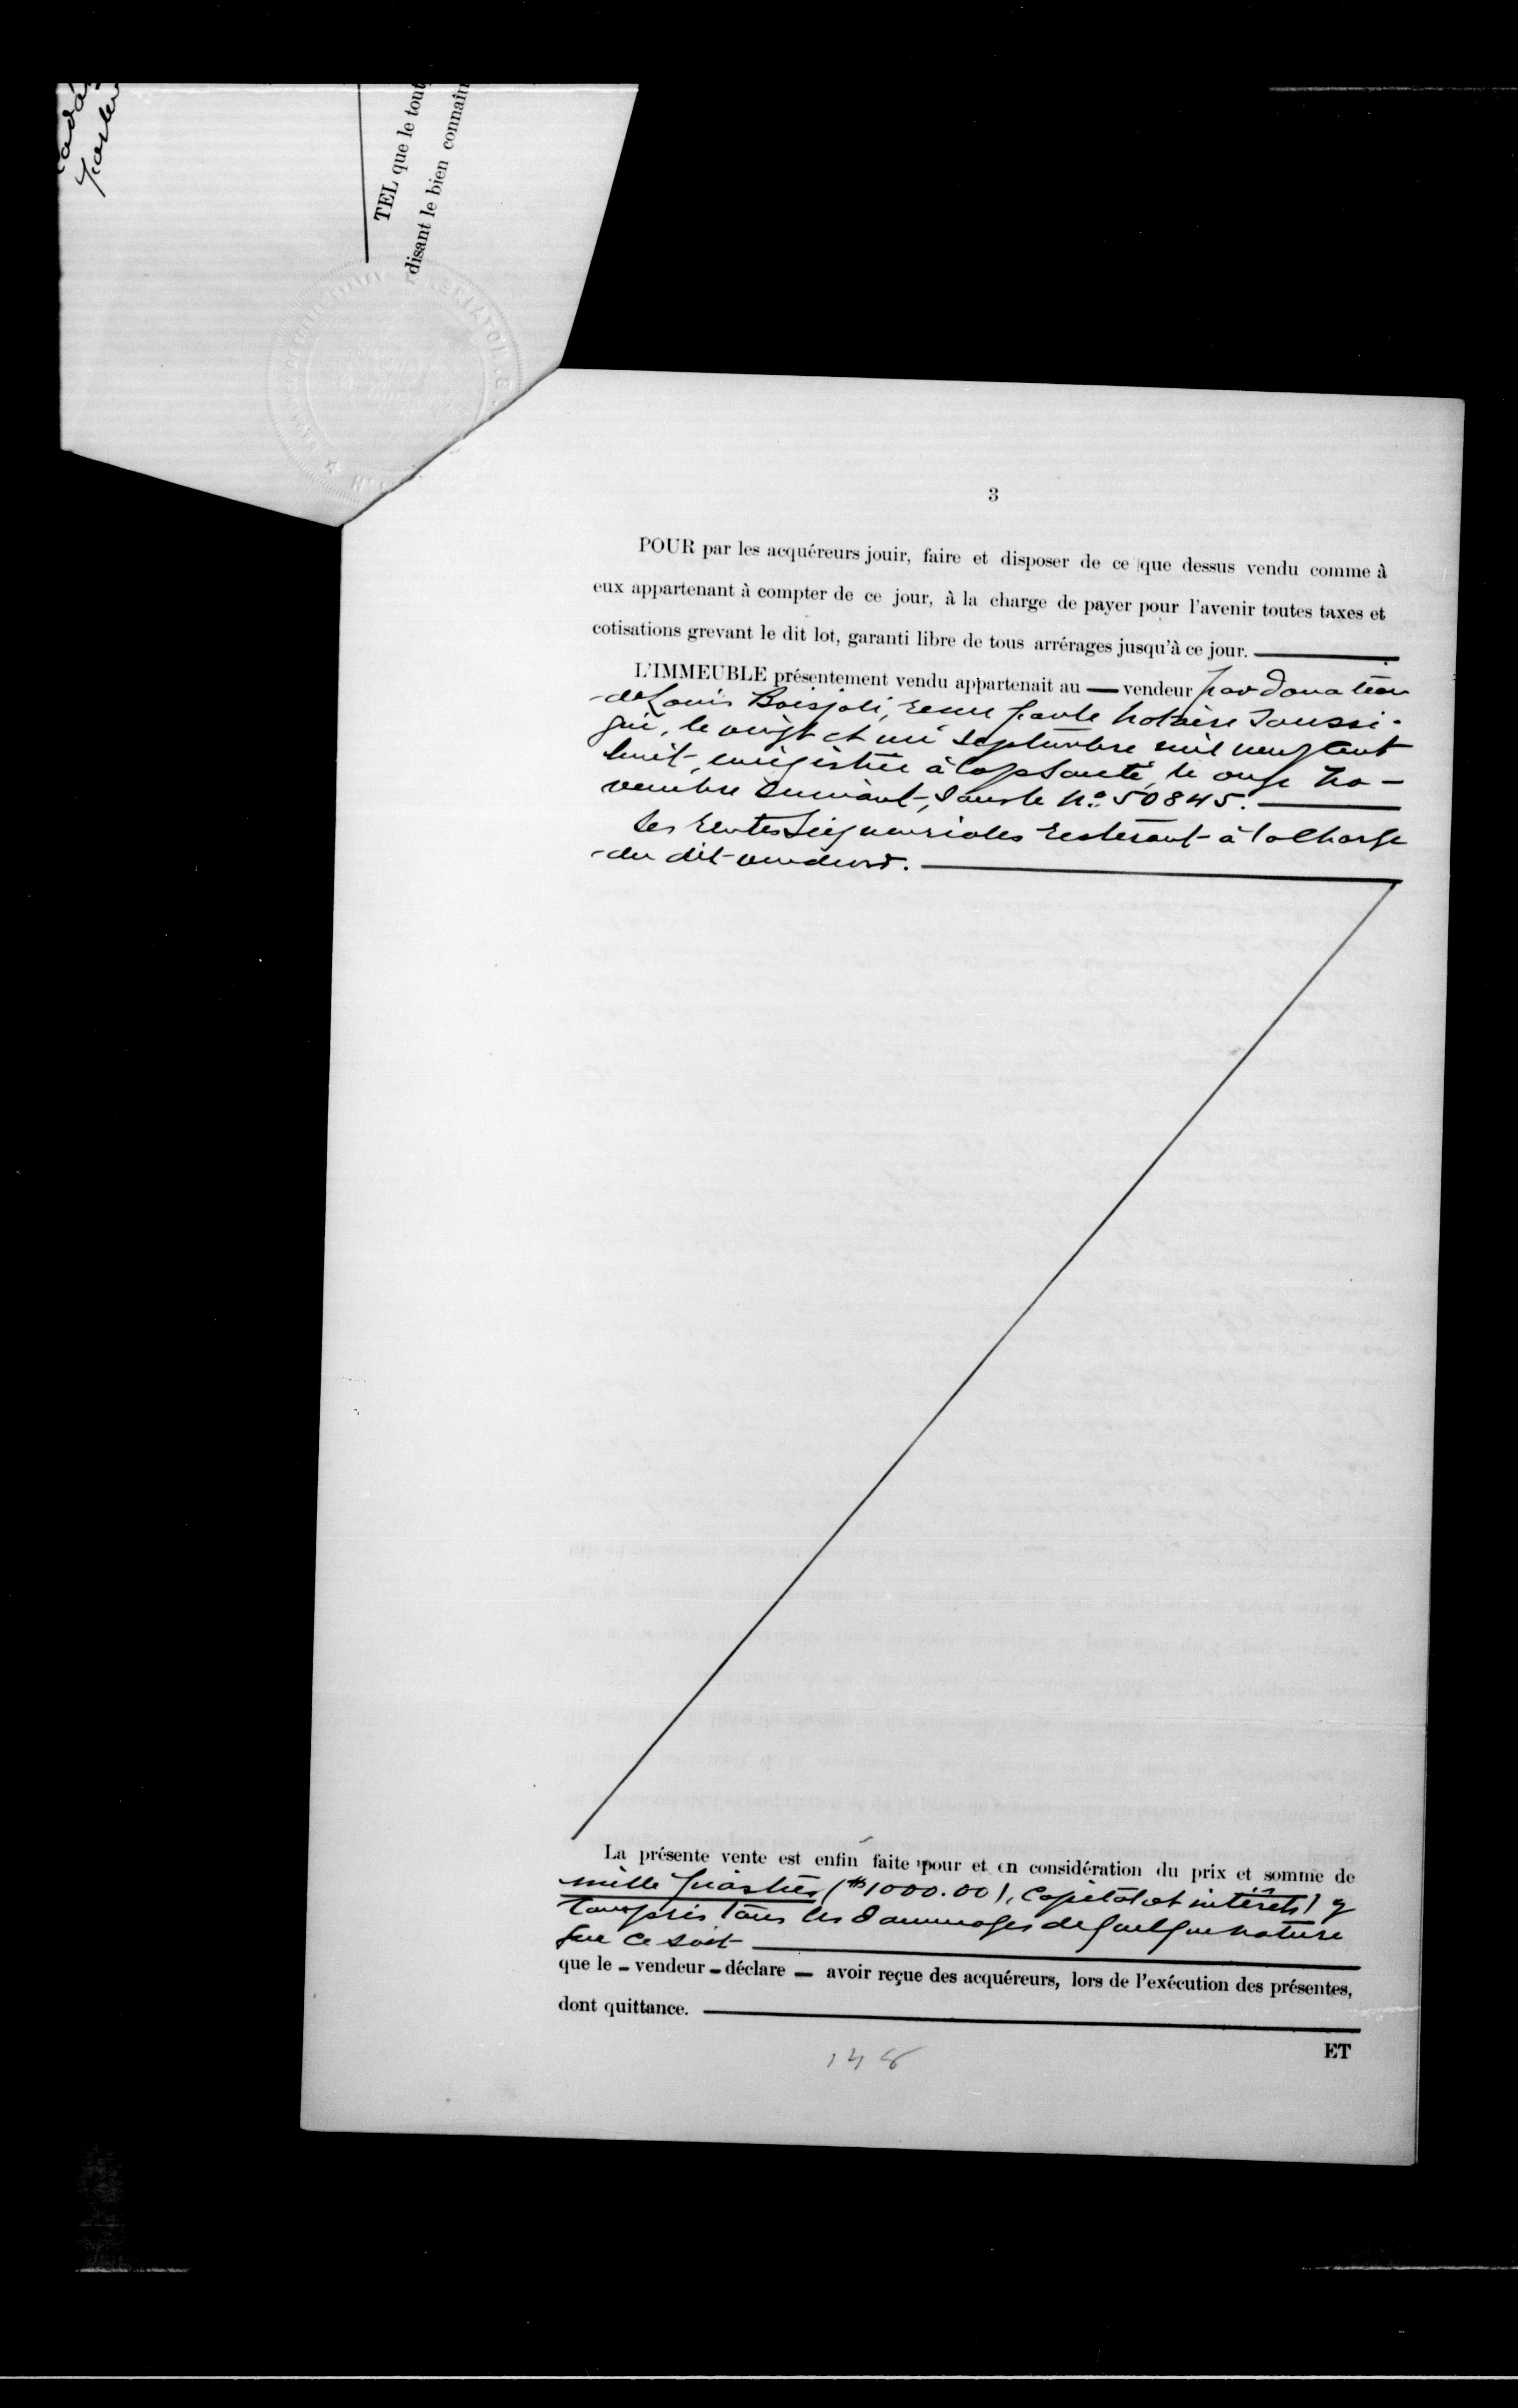 TEL que le tout
disant le bien connaitr
3
POUR par les acquéreurs jouir, faire et disposer de ce que dessus vendu comme à
eux appartenant à compter de ce jour, à la charge de payer pour l'avenir toutes taxes et
cotisations grevant le dit lot, garanti libre de tous arrérages jusqu'à ce jour.
L'IMMEUBLE présentement vendu appartenait au — vendeur par donation
de Louis Boisjoli, reçue par le notaire soussi-
gné, le vingt et un septembre mil neuf cent
huit, enregistrée à Cap Santé, le onze no-
vembre suivant, sous le No. 50845.
Les rentes seigneuriales resteront à la charge
du dit vendeur.
La présente vente est enfin faite pour et en considération du prix et somme de
mille piastres ($1000.00), capital et intérêts, y
compris tous les dommages de quelque nature
que ce soit
que le - vendeur - déclare — avoir reçue des acquéreurs, lors de l'exécution des présentes,
dont quittance.
ET
148